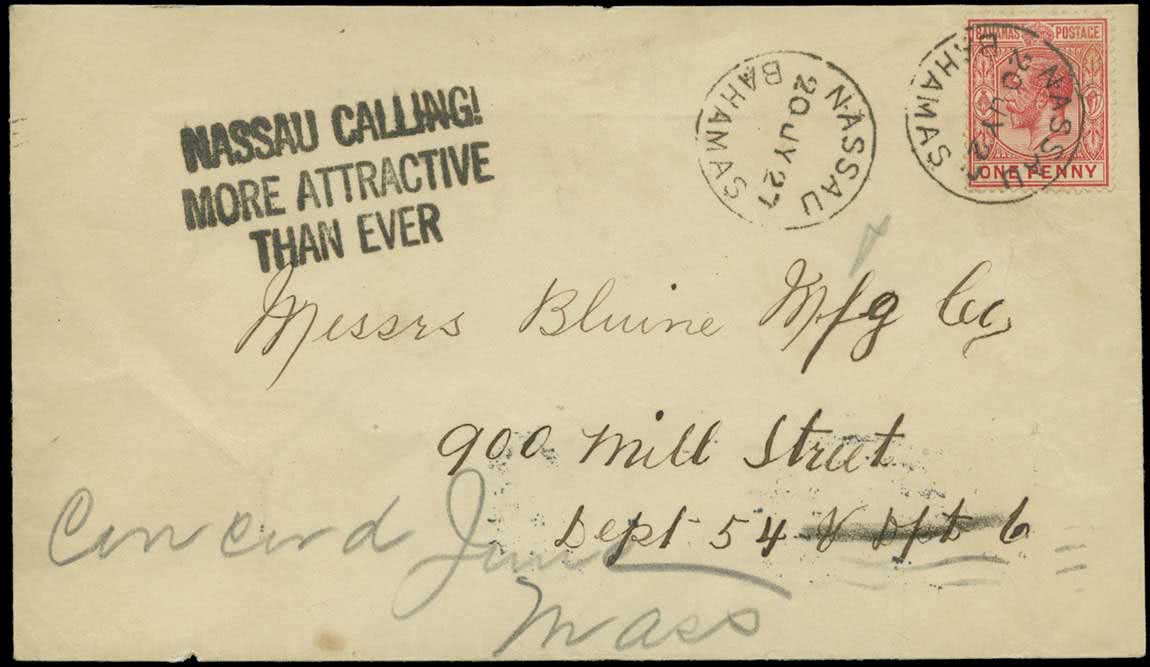 NASSAU CALLING!
MORE ATTRACTIVE
THAN EVER
NASSAU
20 JY 27
BAHAMAS
NASSAU
20 JY 27
BAHAMAS
BAHAMAS POSTAGE
ONE PENNY
Messrs Bluine Mfg Co,
900 Mill Street
Dept 54 & Dpt 6
Concord Junc
Mass